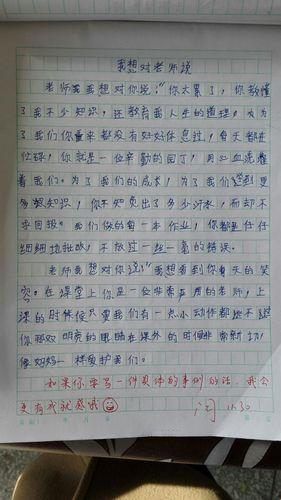 我想对老师说
老师我想对你说:"你太累了,你教懂
了我不少知识,还教育我人生的道理,为
了我们你从来都没有好好休息过,每天都在
忙碌,你就是一位辛勤的园丁,用心血浇灌
着我们。为了我们的成长,为了我们学到更
多的知识,你不知负出了多少汗水,而却不
求回报。我们做的每一本作业,你都是仔仔
细细地批改,不放过一丝一毫的错误。
老师我想对你说:"我想看到你每天的笑
容。在课堂上你是一位非常严厉的老师,上
课的时候只要我们有一点小动作都逃不过
你那双明亮的眼睛在课外的时候非常亲切,
像妈妈一样爱护我们。
如果你要写一件具体的事例的话,我会
更有成就感哦
11.30